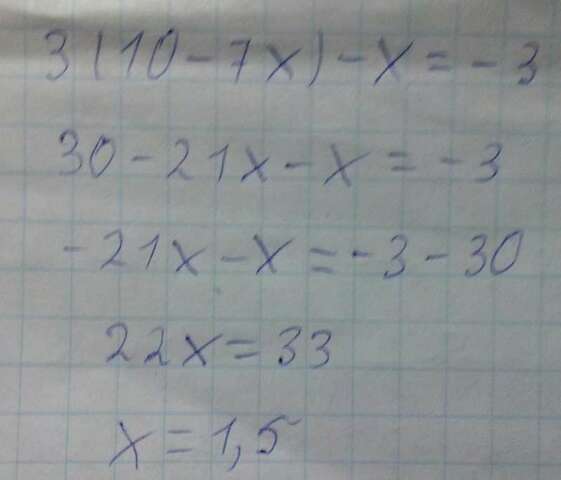 3(10-7x)-x=-3
30-21x-x=-3
-21x-x=-3-30
22x=33
x=1,5